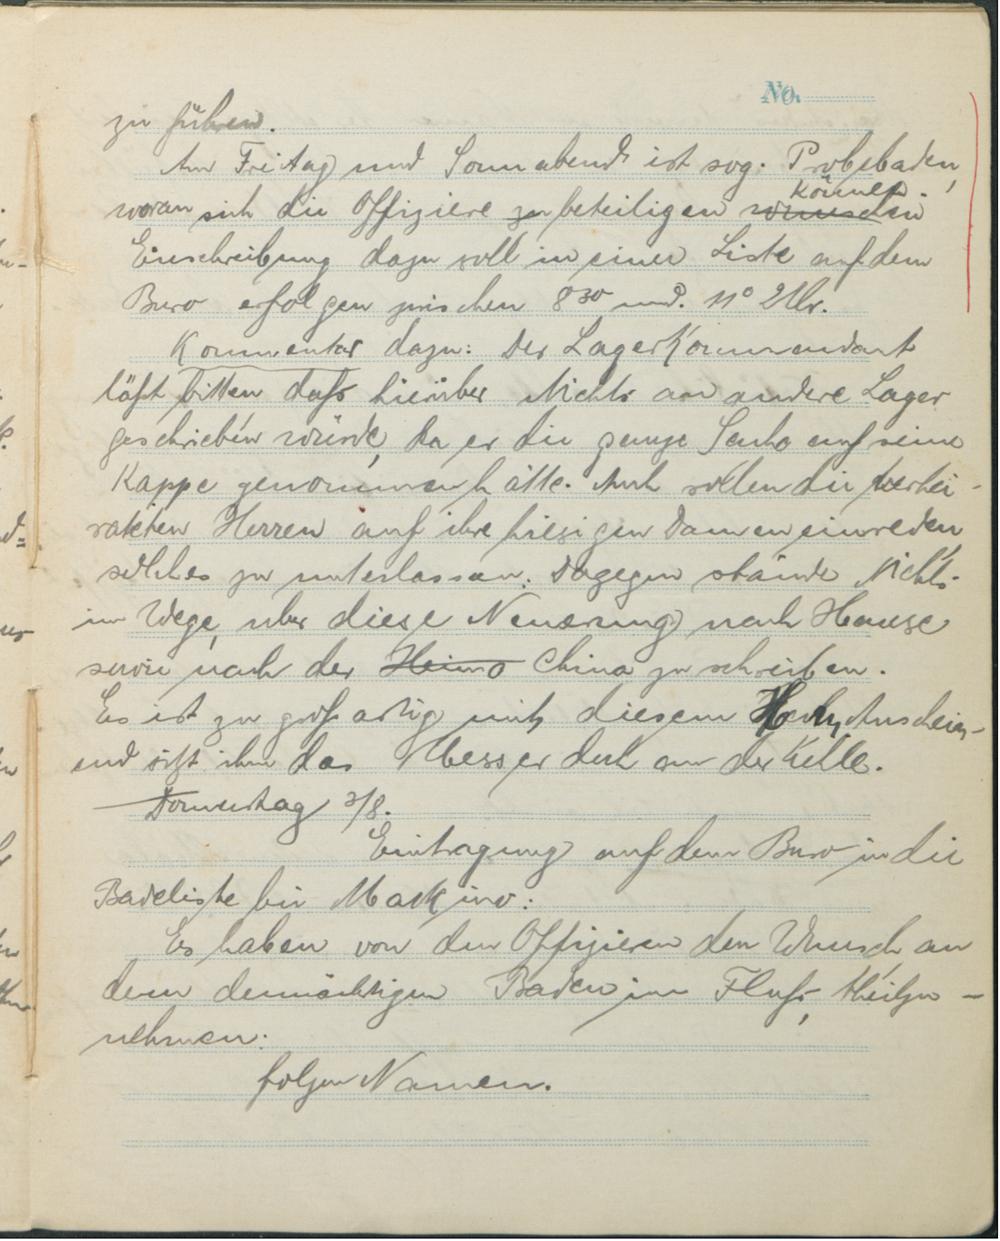 No.
zu führen.
Am Freitag und Sonnabend ist sog. Probebaden,
können.
woran sich die Offiziere zu beteiligen wünschen
Einschreibung dazu soll in einer Liste auf dem
Buro erfolgen zwischen 8³⁰ und. 11⁰ Uhr.
Kommentar dazu: Der Lagerkommandant
läßt bitten daß hierüber Nichts an andere Lager
geschrieben würde, da er die ganze Sache auf seine
Kappe genommen hätte. Auch sollen die verhei-
rateten Herren auf ihre hiesigen Damen einreden
solches zu unterlassen. Dagegen stände Nichts
im Wege, uber diese Neuerung nach Hause
sowie nach der Heimo China zu schreiben.
Es ist zu großartig mit diesem Herrn, Anschein-
end sitzt ihm das Messer doch an der Kelle.
Donnerstag 2/8.
Eintragung auf dem Buro in die
Badeliste bei Makino:
Es haben von den Offizieren den Wunsch an
dem demnächtigen Baden im Fluß, theilzu-
nehmen:
folgen Namen.